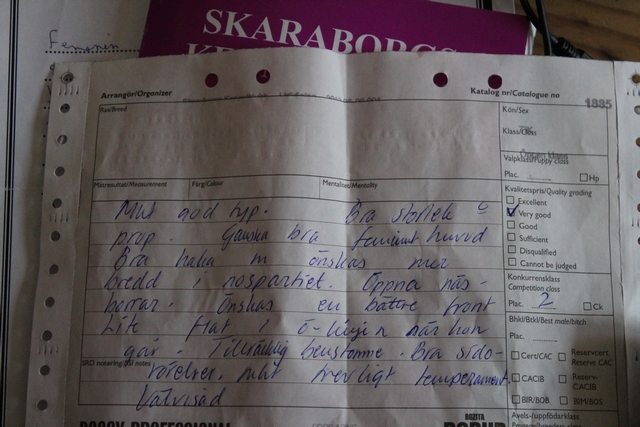 Feminin
SKARABORGS
Arrangör/Organizer
Katalog nr/Catalogue no
1835
Ras/Breed
Kön/Sex
Klass/Class
Öppen klass
Valpklass/Puppy class
Plac.
Hp
Matresultat/Measurement
Färg/Colour
Mentalitet/Mentality
Kvalitetspris/Quality grading
Excellent
Very good
Good
Sufficient
Disqualified
Cannot be judged
Mkt god typ. Bra storlek o
prop. Ganska bra feminint huvud
Bra haka m önskas mer
bredd i nospartiet. Öppna näs-
borrar. Önskas en bättre front
Lite flat i ö-linjen när hon
går. Tillräcklig benstomme. Bra sido-
rörelser. mkt trevligt temperament.
Välvisad
Konkurrensklass
Competition class
Plac. 2
Ck
Bhkl/Btkl/Best male/bitch
Plac.
Cert/CAC
Reservcert
Reserve CAC
CACIB
Reserv-
CACIB
BIR/BOB
BIM/BOS
SRD notering/ notes
Avels-/uppfödarklass
DOGGY PROFESSIONAL
BOZITA